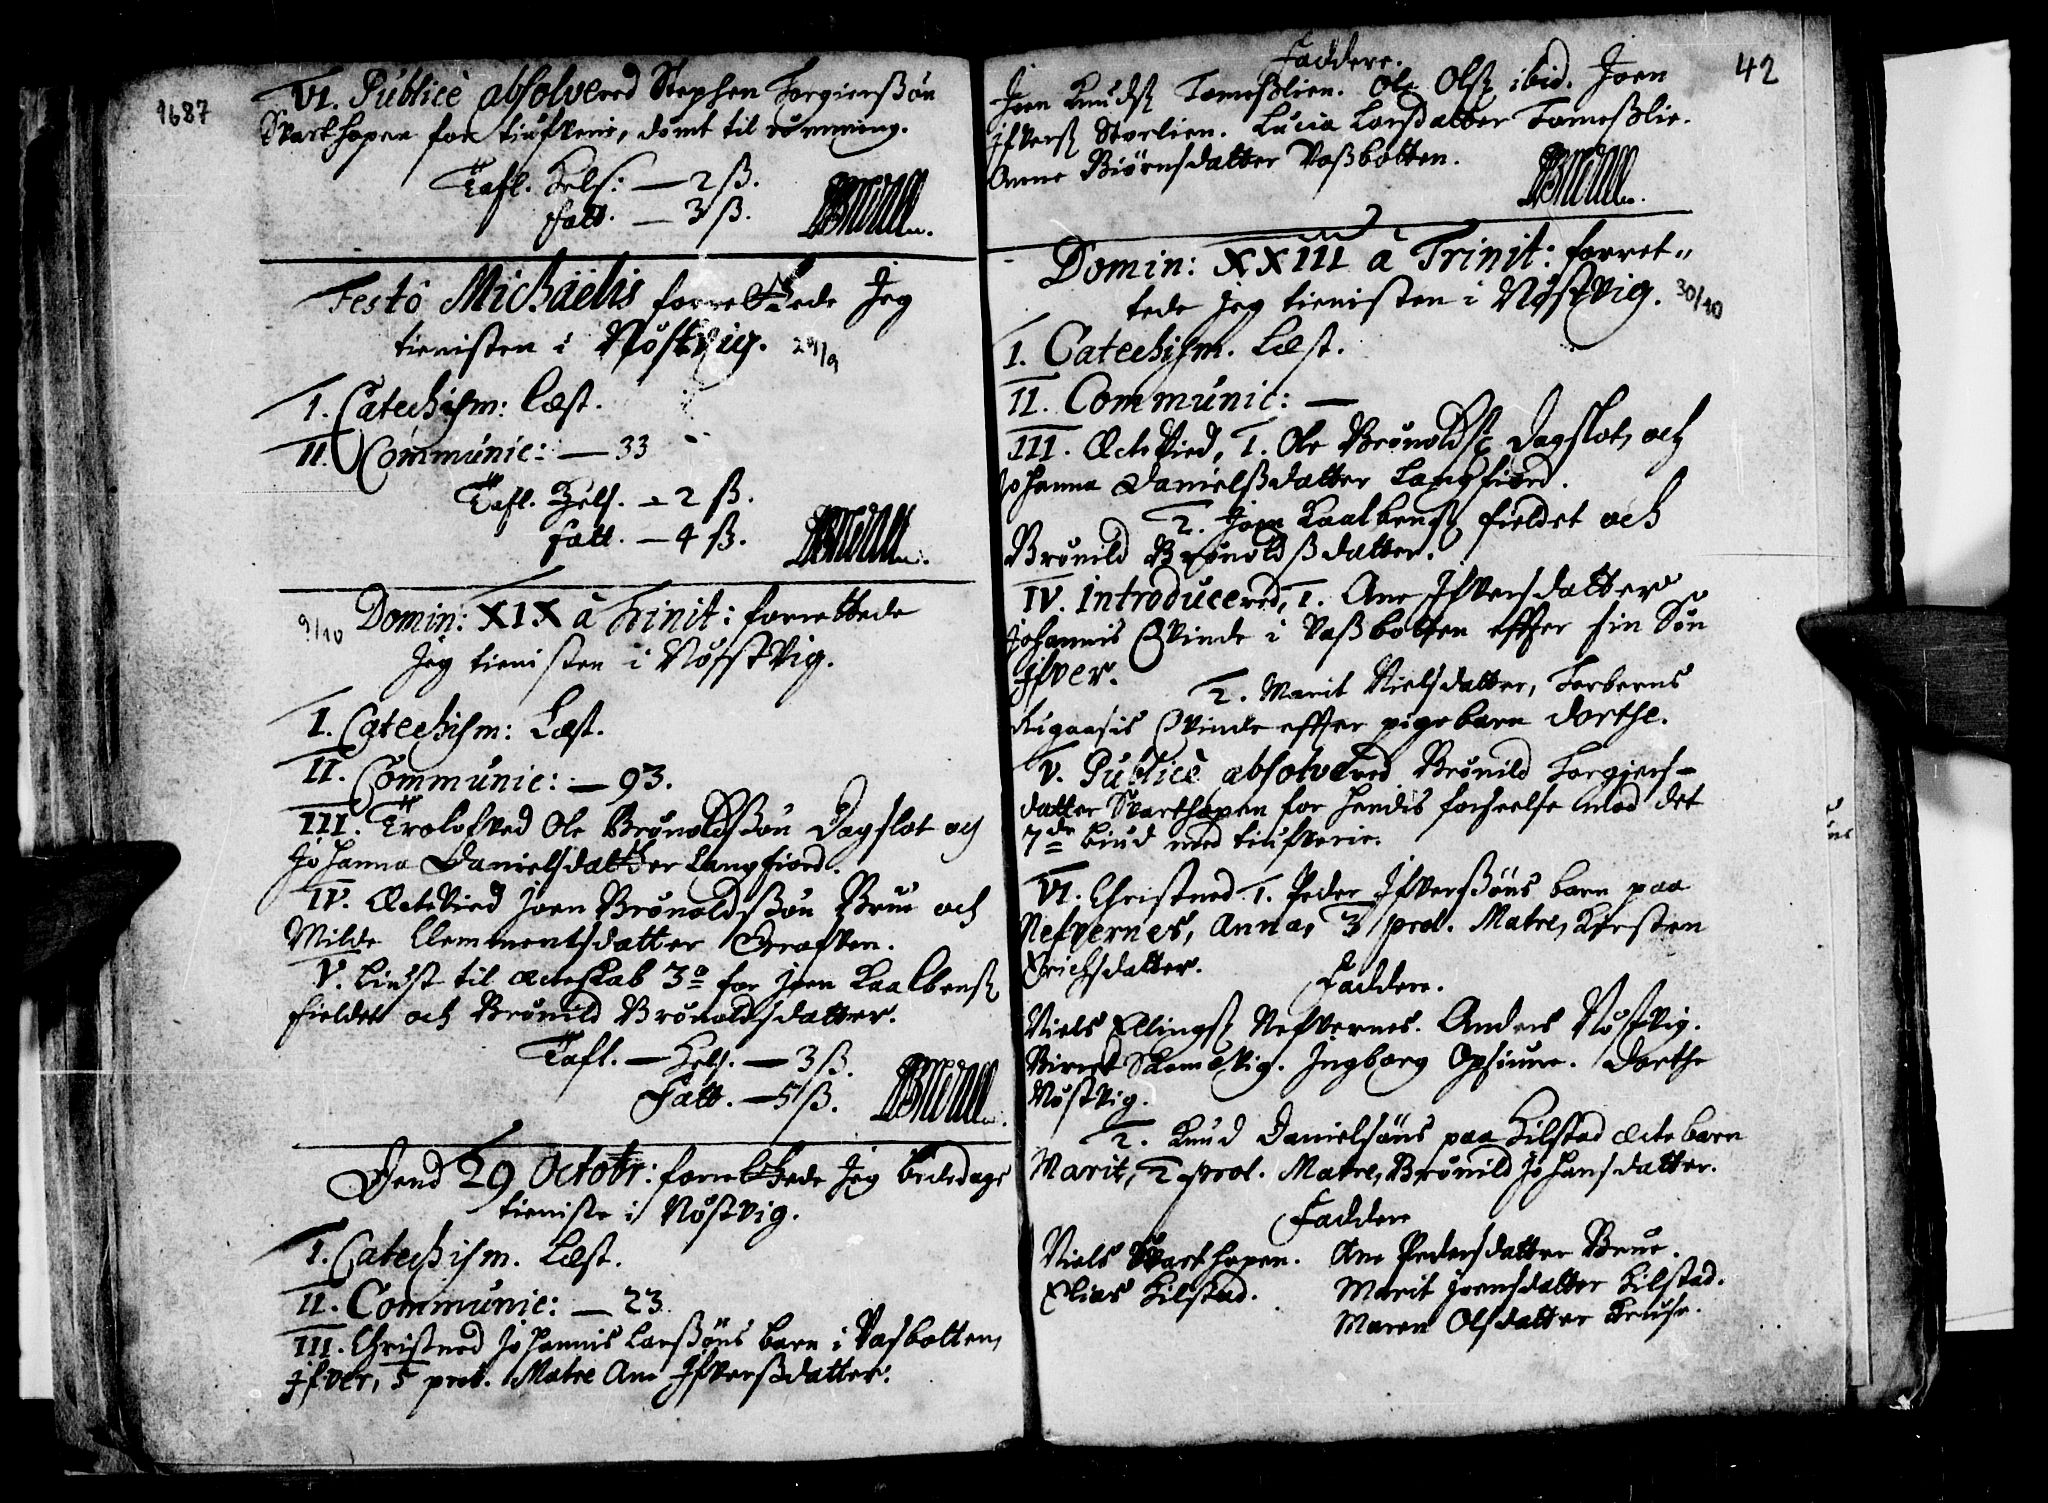 1687
VI. Publicè absolvered Stephen Torgierßøn
Svarthopen for tiufverie, dømt til rømning.
Tafl. Hels: — 2 ß.
fatt. — 3 ß.
Festô Michaëlis forrettede Jeg
tienisten i Nøstvig. 29/9
I. Catechism: Læst.
II. Communic: — 33
Tafl. Hels. — 2 ß.
fatt. — 4 ß.
9/10 Domin: XIX à Trinit: forrettede
Jeg tienisten i Nøfstvig.
I. Catechism: Læst.
II. Communic: — 93.
III. Trolofved Ole Brønoldßøn Dagslot och
Johanna Danielsdatter Langfiord.
IV. Ectevied Joen Brønoldßøn Brue och
Milde Clemmentsdatter Grafven.
V. Liust til ecteskab 3º for Joen Kaalbensß
fieldet och Brønild Brønoldsdatter.
Tafl. — Hels. — 3 ß.
Fatt. — 5 ß.
Dend 29 Octobr: forrettede Jeg bededags
tieniste i Nøstvig.
I. Catechism. Læst.
II. Communic: — 23
III. Christned Johannis Larßøns barn i Vasbotten,
Ifver, 5 prol. Matre Ane Ifverßdatter.
42
Faddere.
Joen Knudsß Tomeßlien. Ole Olsß ibid. Joen
Ifversß Storlien. Lucia Larsdatter Tomeßlie.
Anne Biørnsdatter Vaßbotten.
Domin: XXIII à Trinit: forret„
tede Jeg tienisten i Nøstvig. 30/10
I. Catechism. Læst.
II. Communic: —
III. Ectevied, 1. Ole Brønoldsß Dagslot, och
Johanna Danielßdatter Langfiord.
2. Joen Kaalbensß fieldet och
Brønild Brønoldßdatter.
IV. Introducered, 1. Ane Ifversdatter
Johannis Qvinde i Vaßbotten effter sin Søn
Ifver.
2. Marit Nielsdatter, Torberns
Rugaasis Qvinde effter pigebarn Dorthe.
V. Publicè absolvered Brønild Torgiers-
datter Svarthopen for hendis forseelse mod det
7de biud med tiufverie.
VI. Christned 1. Peder Ifverßøns barn paa
Nefvernes, Anna, 3 prol. Matre, Kirsten
Erichsdatter.
Faddere.
Niels Ellingsß Nefvernes. Anders Nøstvig.
Birret Skomevig. Jngborg Opsiune. Dorthe
Nøstvig.
2. Knud Danielsøns paa Hilstad ecte barn
Marit, 2 prol. Matre, Brønild Johansdatter.
Faddere
Niels Svarthopen. Ane Pedersdatter Brue.
Elias Hilstad. Marit Joensdatter Hilstad.
Maren Olsdatter Kruse.